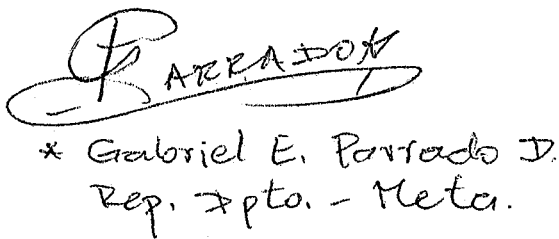 PARRADO
* Gabriel E. Parrado D.
Rep. Dpto. - Meta.